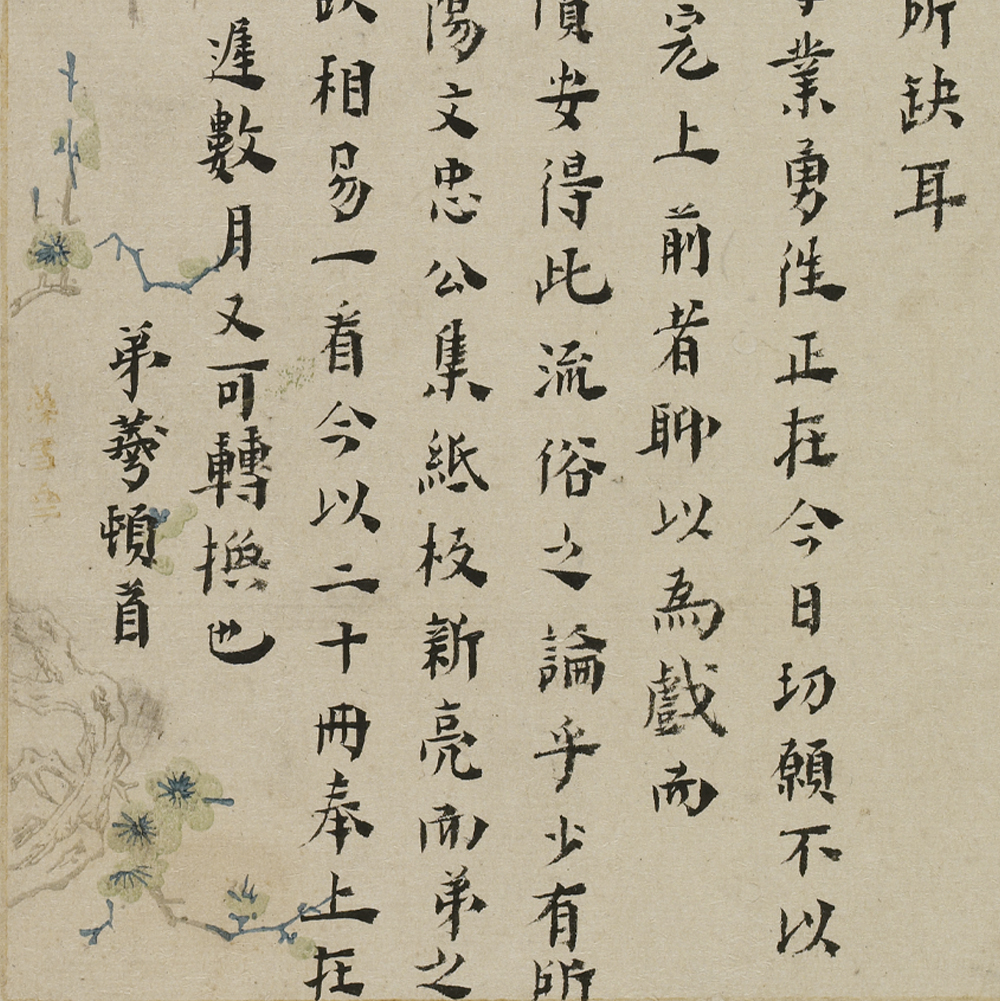 所缺耳
業勇徃正在今日切願不以
完上前者聊以為戲而
安得此流俗之論乎少有所
陽文忠公集紙板新亮而弟之
相易一看今以二十冊奉上在
遲數月又可轉撰也
弟蕚頓首